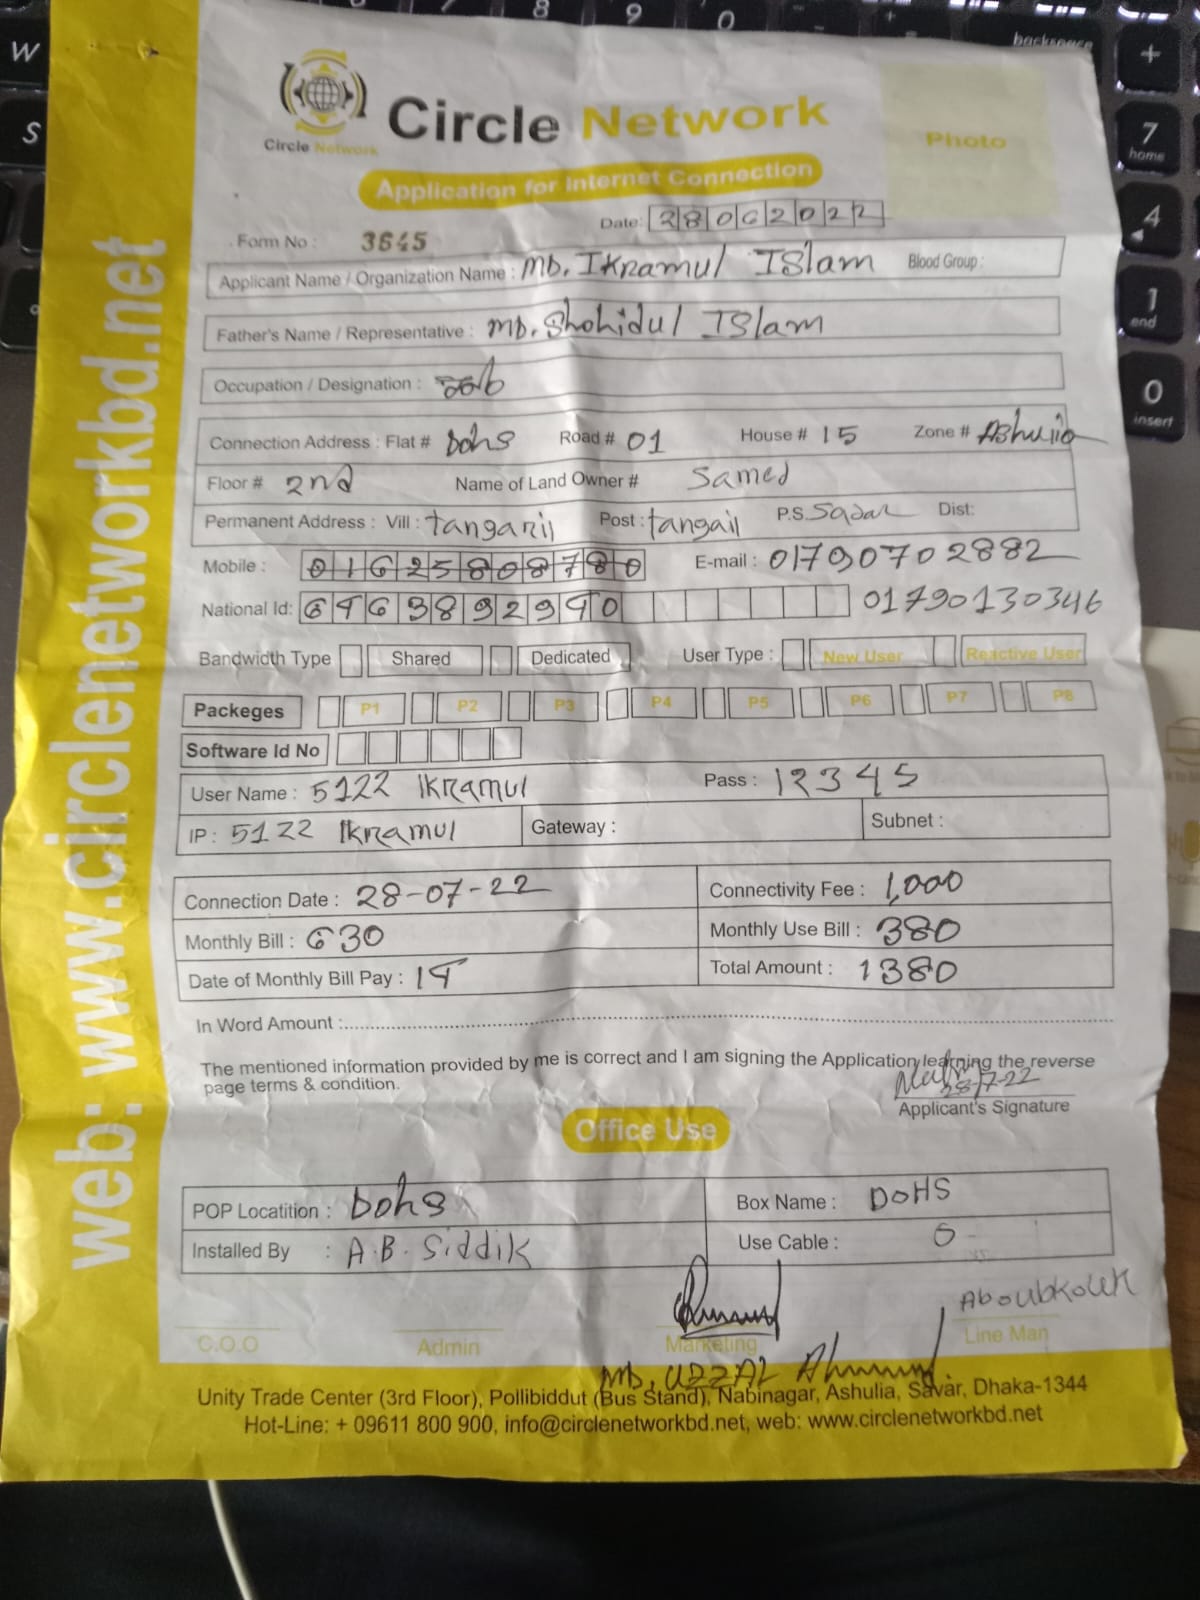 Circle Network
Circle Network
Photo
Application for Internet Connection
Date: 28062022
Form No : 3645
Applicant Name / Organization Name : MD. IKRamul ISlam Blood Group :
Father's Name / Representative : MD. Shohidul ISlam
Occupation / Designation :
Connection Address : Flat # Dohs Road # 01 House # 15 Zone # AShulia
Floor # 2nd Name of Land Owner # Samed
Permanent Address : Vill : tangaril Post : tangail P.S. Sadar Dist:
Mobile : 01625808780 E-mail : 01790702882
National Id: 6463892940 01790130346
Bandwidth Type Shared Dedicated User Type : New User Reactive User
Packeges P1 P2 P3 P4 P5 P6 P7 P8
Software Id No
User Name : 5122 IKRamul Pass : 12345
IP : 5122 IKRamul Gateway : Subnet :
Connection Date : 28-07-22 Connectivity Fee : 1,000
Monthly Bill : 630 Monthly Use Bill : 380
Date of Monthly Bill Pay : 14 Total Amount : 1380
In Word Amount :
The mentioned information provided by me is correct and I am signing the Application learning the reverse
page terms & condition.
28-7-22
Applicant's Signature
Office Use
POP Locatition : Dohs Box Name : DOHS
Installed By : A.B. Siddik Use Cable : 0
C.O.O Admin Marketing Line Man
MD. UZZAL Ahmmed
Unity Trade Center (3rd Floor), Pollibiddut (Bus Stand), Nabinagar, Ashulia, Savar, Dhaka-1344
Hot-Line: + 09611 800 900, info@circlenetworkbd.net, web: www.circlenetworkbd.net
web: www.circlenetworkbd.net